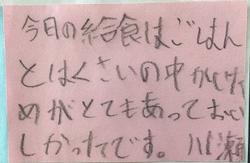 今日の給食はごはん
とはくさいの中かいため
めがとてもあっておい
しかったです。川瀬